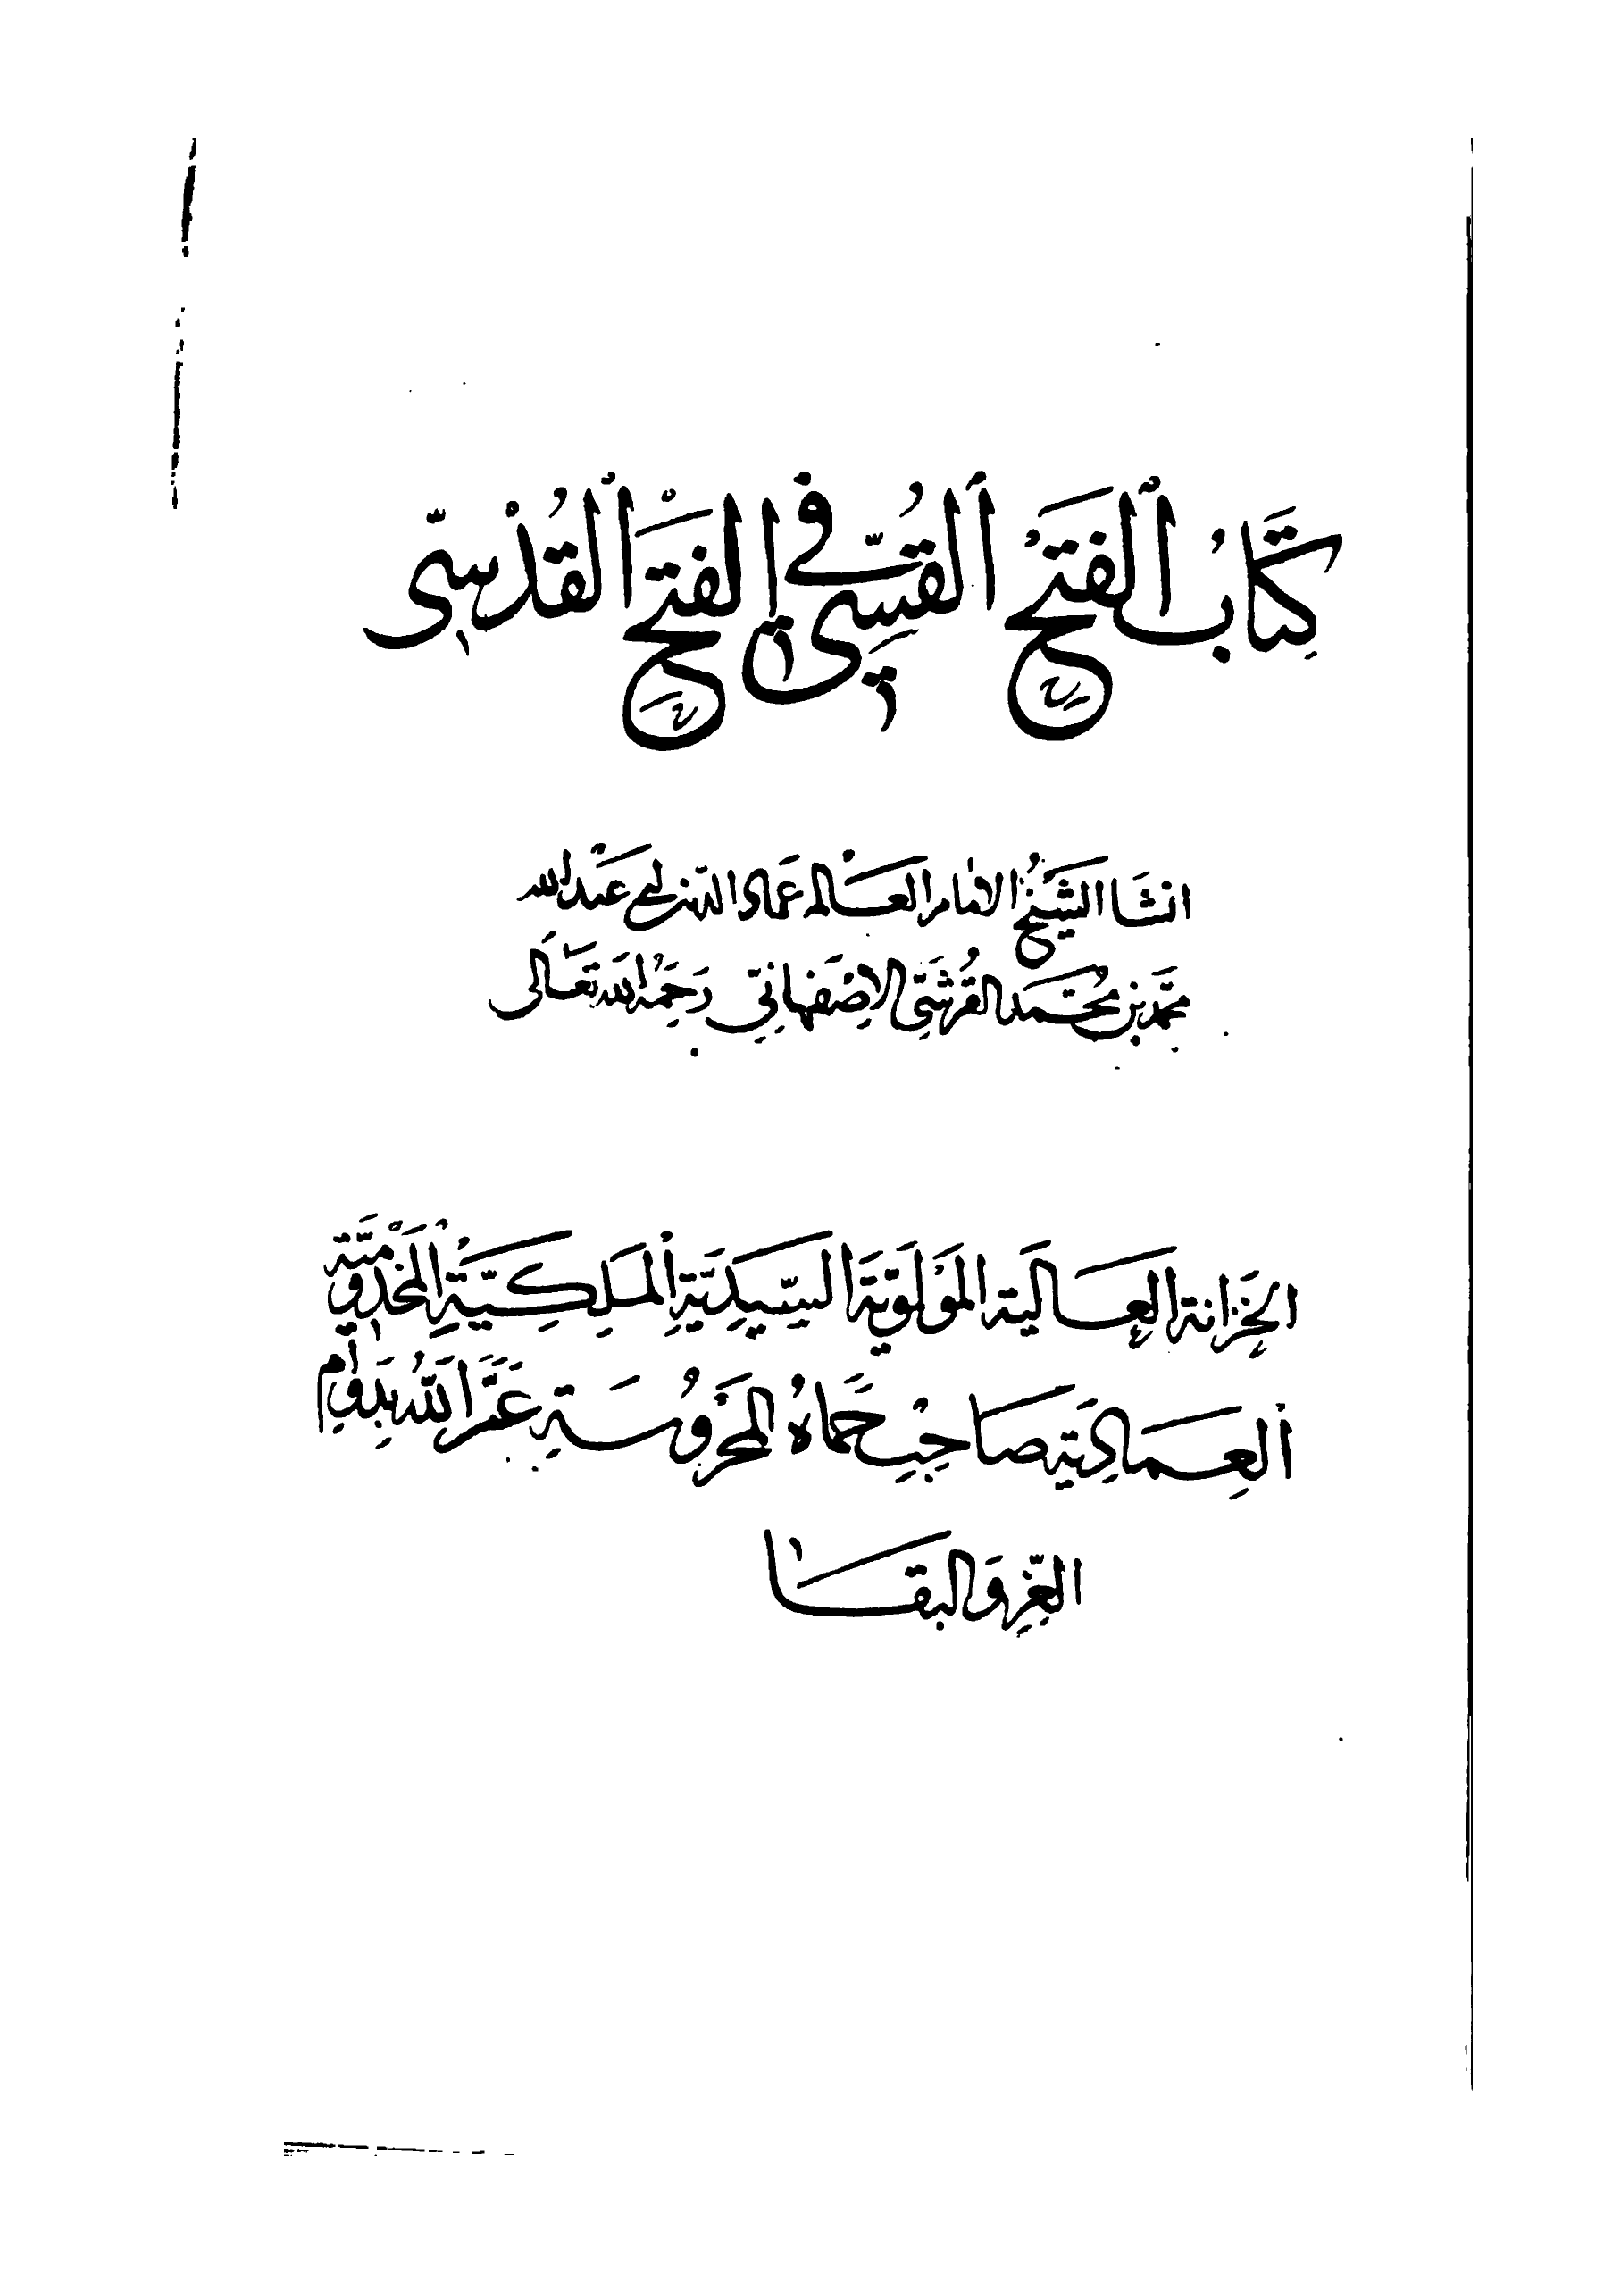 كِتَابُ ٱلفَتْحُ ٱلقُسِّيّ فِي ٱلفَتْحِ ٱلقُدْسِيّ
انشَا الشَيْخُ الامام العَالم عَماد الدين ابي عَبْد الله
محمّد بن مُحَمّد القُرشيّ الاِصْفَهانِيّ رَحِمَهُ الله تَعَالَى
الخِزَانة العَاليَة المَوْلَوِيّة السَّيِّدِيَّةِ المَلِكِيَّةِ المَخْدُومِيَّة
العِمَادِيَّة صَاحِبُ حَمَاهُ المَحْرُوسَةِ عَمَّرَ اللهُ بِدَوَامِ
العِزِّ وَالبقَا